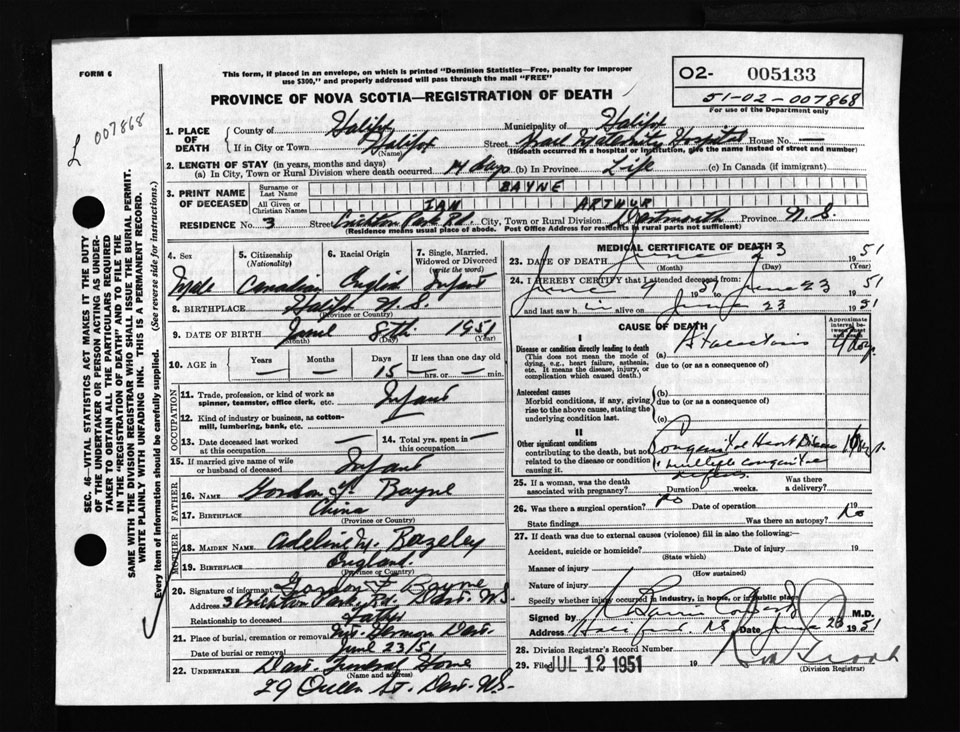 FORM 6
This form, if placed in an envelope, on which is printed "Dominion Statistics—Free, penalty for improper
use $300," and properly addressed will pass through the mail "FREE"
O2- 005133
51-02-007868
For use of the Department only
PROVINCE OF NOVA SCOTIA—REGISTRATION OF DEATH
L 007868
1. PLACE OF DEATH
County of Halifax Municipality of Halifax
If in City or Town Halifax (Name) Street Grace Maternity Hospital House No. —
(If death occurred in a hospital or institution, give the name instead of street and number)
2. LENGTH OF STAY (in years, months and days)
(a) In City, Town or Rural Division where death occurred 14 days (b) In Province Life (c) In Canada (if immigrant)
3. PRINT NAME OF DECEASED
Surname or Last Name BAYNE
All Given or Christian Names IAN ARTHUR
RESIDENCE No. 3 Street Crichton Park Rd. City, Town or Rural Division Dartmouth Province N.S.
(Residence means usual place of abode. Post Office Address for residents in rural parts not sufficient)
4. Sex Male
5. Citizenship (Nationality) Canadian
6. Racial Origin English
7. Single, Married, Widowed or Divorced (write the word) Infant
8. BIRTHPLACE Halifax N.S.
(Province or Country)
9. DATE OF BIRTH June 8th 1951
(Month) (Day) (Year)
10. AGE in Years — Months — Days 15 If less than one day old — hrs. or — min.
OCCUPATION
11. Trade, profession, or kind of work as spinner, teamster, office clerk, etc. Infant
12. Kind of industry or business, as cotton-mill, lumbering, bank, etc.
13. Date deceased last worked at this occupation —
14. Total yrs. spent in this occupation —
15. If married give name of wife or husband of deceased Infant
FATHER
16. NAME Gordon F. Bayne
17. BIRTHPLACE China
(Province or Country)
MOTHER
18. MAIDEN NAME Adeline M. Bazeley
19. BIRTHPLACE England
(Province or Country)
20. Signature of informant Gordon F Bayne
Address 3 Crichton Park Rd. Dart. N.S.
Relationship to deceased Father
21. Place of burial, cremation or removal Mt. Hermon Dart.
Date of burial or removal June 23/51
22. UNDERTAKER Dart. Funeral Home
(Name and address)
29 Queen St. Dart. N.S.
MEDICAL CERTIFICATE OF DEATH
23. DATE OF DEATH June 23 1951
(Month) (Day) (Year)
24. I HEREBY CERTIFY that I attended deceased from:
June 9 1951 to June 23 1951
and last saw him alive on June 23 1951
CAUSE OF DEATH
Approximate interval between
I
Disease or condition directly leading to death
(This does not mean the mode of dying, e.g., heart failure, asthenia, etc. It means the disease, injury, or complication which caused death.)
(a) Atelectasis
due to (or as a consequence of)
Antecedent causes
Morbid conditions, if any, giving rise to the above cause, stating the underlying condition last.
(b)
due to (or as a consequence of)
(c)
II
Other significant conditions contributing to the death, but not related to the disease or condition causing it
Congenital Heart Disease
multiple congenital
defects.
25. If a woman, was the death associated with pregnancy? Duration weeks. Was there a delivery?
26. Was there a surgical operation? no Date of operation 19
State findings Was there an autopsy? No
27. If death was due to external causes (violence) fill in also the following:—
Accident, suicide or homicide? Date of injury 19
(State which)
Manner of injury
(How sustained)
Nature of injury
Specify whether injury occurred in industry, in home, or in public place
Signed by M.D.
Address Halifax N.S. Date June 23 1951
28. Division Registrar's Record Number
29. Filed JUL 12 1951 19
(Division Registrar)
SEC. 46—VITAL STATISTICS ACT MAKES IT THE DUTY
OF THE UNDERTAKER OR PERSON ACTING AS UNDER-
TAKER TO OBTAIN ALL THE PARTICULARS REQUIRED
IN THE "REGISTRATION OF DEATH" AND TO FILE THE
SAME WITH THE DIVISION REGISTRAR WHO SHALL ISSUE THE BURIAL PERMIT.
WRITE PLAINLY WITH UNFADING INK. THIS IS A PERMANENT RECORD.
Every item of information should be carefully supplied. (See reverse side for instructions.)